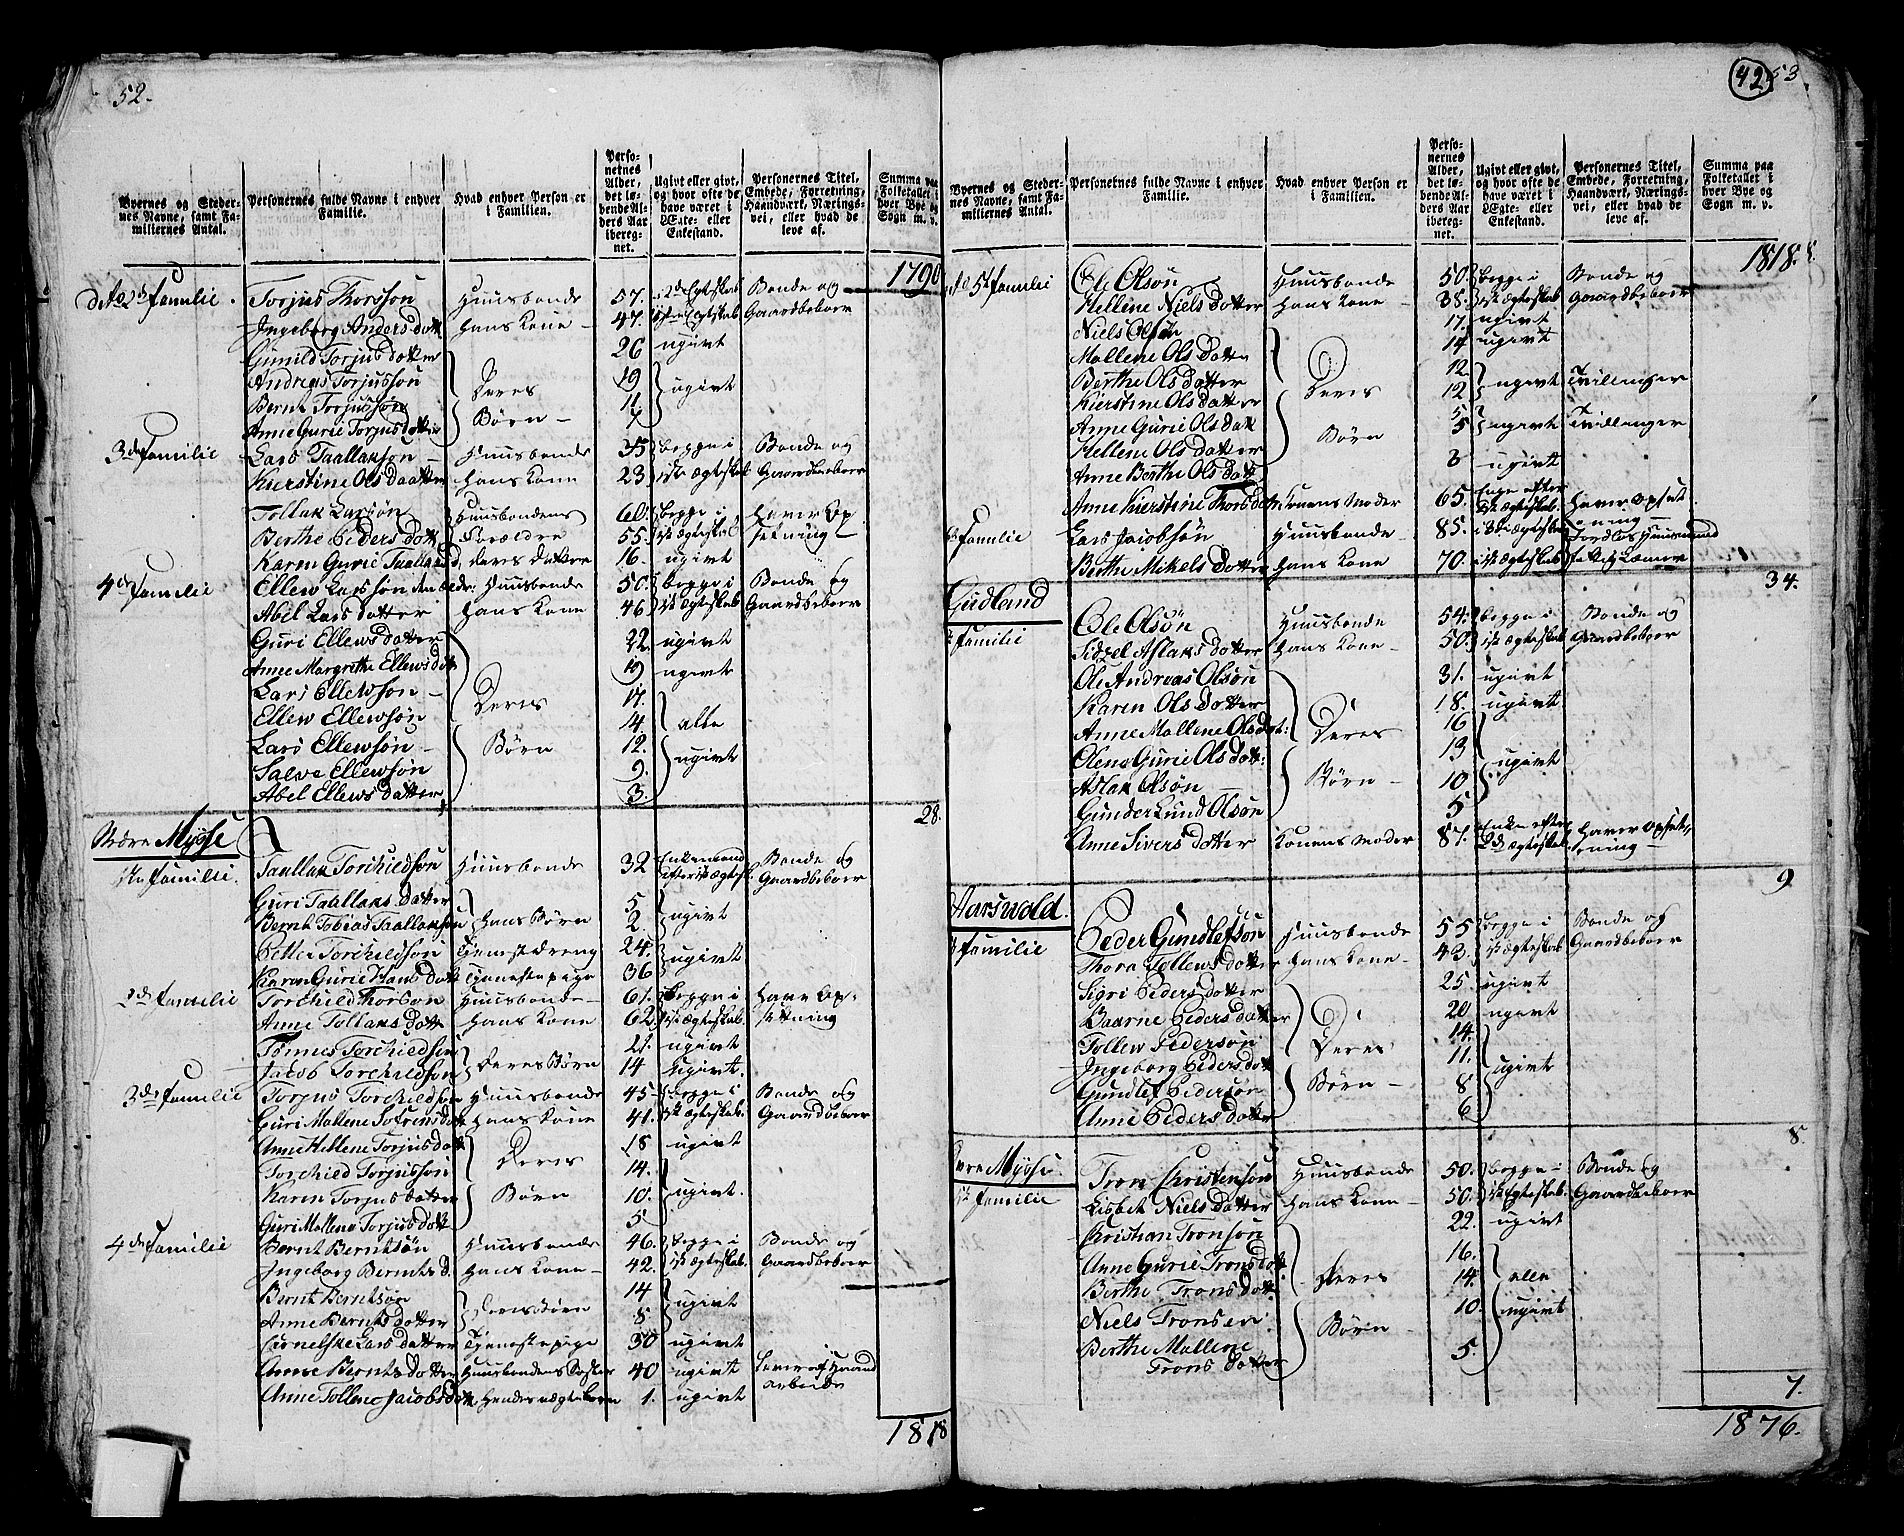 52.
Byernes og Steder-
nes Navne, samt Fa-
miliernes Antal.
Personernes fulde Navne i enhver
Familie.
Hvad enhver Person er
i Familien.
Perso-
nernes
Alder,
det lø-
bende Al-
ders Aar
iberеg-
net.
Ugivt eller givt,
og hvor ofte de
have været i
Ægte- eller
Enkestand.
Personernes Titel,
Embede, Forretning,
Haandværk, Nærings-
vei, eller hvad de
leve af.
Summa paa
Folketallet i
hver Bye og
Sogn m. v.
1790
dito 2de Familie. Torjus Thorsson Huusbonde 57. 2det Egteskab Bonde og
Ingeborg Anders dott. hans Kone 47. Egteskab Gaardbeboer
Gunild Torjus dotter 26 ugivt
Andreas Torjusson Deres 19 ugivt
Bernt Torjusson Børn 11
Anne Gurie Torjusdotter 7
3de Familie Lars Taallakson Huusbonde 35 begge i Bonde og
Kierstine Ols Daatter hans Kone 23 1ste Ægteskab Gaardbeboer
Tollak Larsøn Huusbondens 60 begge i haver Op
Berthe Peders dott. Forældre 55. 1st Ægteskab sætning
Karen Gurie Taallaksd. deres Datter 16. ugivt
4de Familie Ellew Larsson den ældr: Huusbonde 50. begge i Bonde og
Abel Lars dotter hans Kone 46 1st Ægteskab Gaardbeboer
Guri Ellewsdotter 22. ugivt
Anne Margrethe Ellewsdott 19 ugivt
Lars Ellewson Deres 17.
Ellew Ellewsøn 14. alle
Lars Ellewsøn Børn 12. ugivt
Salve Ellewsøn 9.
Abel Ellews datter 3.
28.
Nedre Mygse
1ste Familie. Taallak Torchildsøn Huusbonde 32 Enkemand Bonde og
efter 1st Ægtesk. Gaardbeboer
Guri Taallaks Datter hans Børn 5 ugivt
Bernt Tobias Taallaksøn 2.
Petter Torchildsøn Tienestedreng 24. ugivt
Karen Gurie Hans Dott Tienestepige 36
2de Familie Torchild Thorson Huusbonde 61. begge i have Op-
Anne Tollaks Dott hans Kone 62. 1st Ægteskab. sætning
Tønnes Torchildsøn Deres Børn 21. ugivt
Jacob Torchildsøn 14 ugivt.
3de Familie Torjus Torchildsøn Huusbonde 45 begge i Bonde og
Guri Mallene Søfrensdott hans Kone 41. 1st Ægteskab. Gaardbeboer
Anne Hellene Torjusdott Deres 18 ugivt
Torchild Torjusson 14.
Karen Torjus Dotter Børn 10. ugivt.
Guri Mallena Torjusdott 5
4de Familie Bernt Berntsøn Huusbonde 46. begge i Bonde og
Ingeborg Bernts d. hans Kone 42. 1st Ægteskab. Gaardbeboer
Bernt Berntsøn Deres Børn 14 ugivt
Anne Bernts Dotter 8
Cornelske Lars Dotter Tjenestepige 30 ugivt
Anne Bernts Dotter Huusbondens Søster 40 ugivt Lever af Haand
arbeide
Anne Tollene Jacobsdott hendes uægte Barn 1. ugivt
1818
42 53
Byernes og Steder-
nes Navne, samt Fa-
miliernes Antal.
Personernes fulde Navne i enhver
Familie.
Hvad enhver Person er
i Familien.
Perso-
nernes
Alder,
det lø-
bende Al-
ders Aar
ibereg-
net.
Ugivt eller givt,
og hvor ofte de
have været i
Ægte- eller
Enkestand.
Personernes Titel,
Embede, Forretning,
Haandværk, Nærings-
vei, eller hvad de
leve af.
Summa paa
Folketallet i
hver Bye og
Sogn m. v.
1818.
5te Familie Ole Olsøn Huusbonde 50. begge i Bonde og
Hellene Niels Dotter hans Kone 38. 1st Ægteskab Gaardbeboer
Niels Olsøn 17. ugivt
Mallene Ols Datter 14 ugivt
Berthe Ols Datter Deres 12 ugivt Tvillinger
Kierstine Ols Datter 12
Anne Gurie Ols Datt 5 ugivt Tvillinger
Hellene Ols Datter Børn 5
Anne Berthe Ols Datt 3 ugivt
Anne Kierstine Thors D. Konens Moder 65. Enke efter haver Opsæt
1st Ægteskab ning
Familie Lars Jacobsøn Huusbonde 85. i 3de Ægteskab Jordløs Huusmand
Berthe Mikels Dotter hans Kone 70. i 1st Ægteskab
34.
Gudland
Familie Ole Olsøn Huusbonde 54. begge i Bonde og
Sidzel Aslaks dotter hans Kone 50. 1st Ægteskab Gaardbeboer
Ole Andreas Olsøn 31. ugivt
Karen Ols Dotter 18. ugivt
Anne Mallene Olsdot: Deres 16
Olena Gurie Olsdott: 13 ugivt
Aslak Olsøn Børn 10
Gunder Lund Olsøn 5
Anne Sivers Dotter Konens Moder 87. Enke efter haver Opsæt
2det Ægteskab. ning
9
Aarswold.
Familie Peder Gundlefsøn Huusbonde 55 begge i Bonde og
Thora Tollews dotter hans Kone 43. 1st Ægteskab Gaardbeboer
Sigri Peders dotter 25. ugivt
Baarne Peders dotter 20 ugivt
Tollew Pedersøn Deres 14.
Ingeborg Peders dott 11. ugivt
Gundlef Pedersøn Børn 8
Anne Peders dotter 6
8.
Øvre Mygse.
1st Familie Tron Christensøn Huusbonde 50. begge i Bonde og
Lisbet Niels Dotter hans Kone 50. 1st Ægteskab. Gaardbeboer
Christian Tronsøn 22. ugivt
Anne Gurie Tronsdott 16.
Berthe Trons Dott Deres 14. alle
Niels Tronsen 10. ugivt
Berthe Mallene Børn 5.
Trons Dotter
7.
1876.